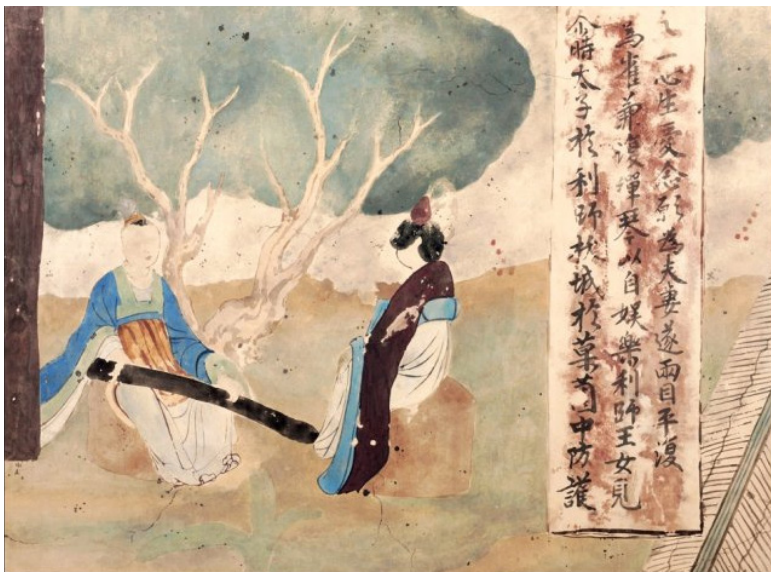 尒時太子於利師跋城於菓薗中防護
鳥雀兼復彈琴以自娛樂利師王女見
之一心生愛念願為夫妻遂兩目平復